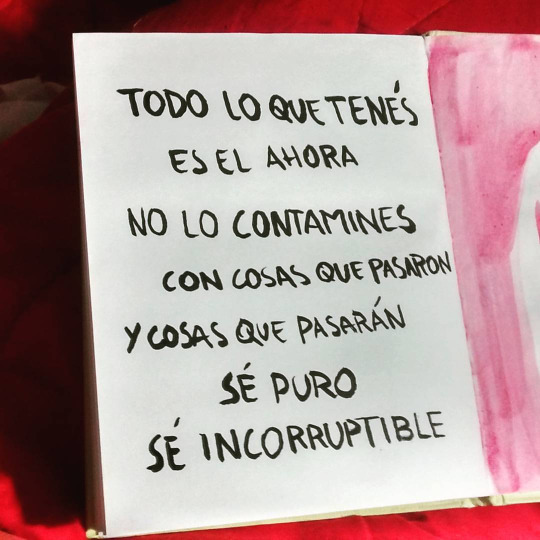 TODO LO QUE TENÉS
ES EL AHORA
NO LO CONTAMINES
CON COSAS QUE PASARON
Y COSAS QUE PASARÁN
SÉ PURO
SÉ INCORRUPTIBLE